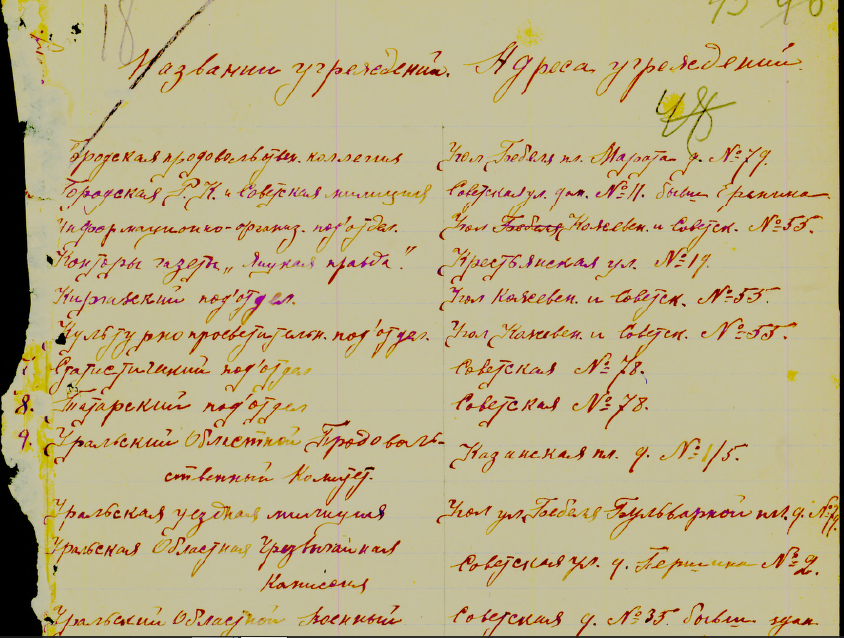 18
Названии учреждений. Адреса учреждений.
48
Городская продовольствен. коллегия Угол Бебеля пл. Марата д. № 79.
Городская Р. К. и Советская милиция Советская ул. дом. № 11. бывш.
Информационно-организ. под'отдел. Угол Бебеля Кожевен. и Советск. № 55.
Конторы газеты „Яицкая правда". Крестьянская ул. № 19.
Киргизский под'отдел. Угол Кожевен. и Советск. № 55.
Культурно просветительн. под'отдел. Угол Кожевен. и Советск. № 55.
Статистический под'отдел Советская № 78.
8. Татарский под'отдел Советская № 78.
9. Уральский Областной Продоволь-
ственный Комитет. Казанская пл. д. № 1/5.
Уральская уездная милиция Угол ул. Бебеля Бульварной пл. д. № 79.
Уральская Областная Чрезвычайная
Камисеия Советская ул. д. Першина № 2.
Уральский Областной Военный Советская д. № 35. бывш. здан.